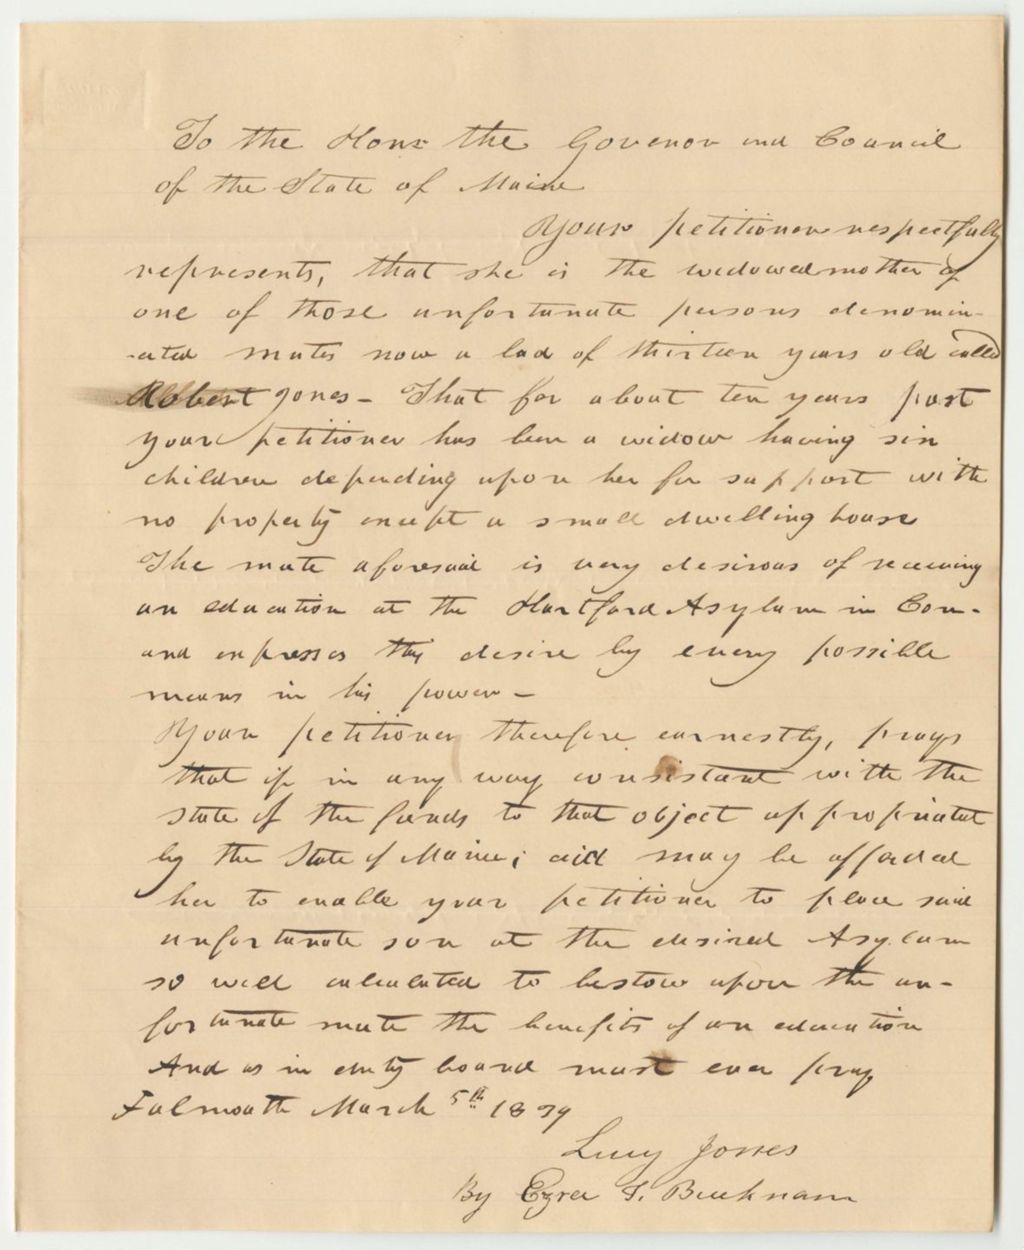 To the Honr the Govenor and Council
of the State of Maine
Your petitioner respectfully
represents, that she is the widowed mother of
one of those unfortunate persons denomin-
-ated mutes now a lad of thirteen years old called
Robert Jones - That for about ten years past
your petitioner has been a widow having six
children depending upon her for support with
no property except a small dwelling house
The mute aforesaid is very desirous of receiving
an education at the Hartford Asylum in Con-
and expresses this desire by every possible
means in his power -
Your petitioner therefore earnestly, prays
that if in any way consistant with the
state of the funds to that object appropriated
by the State of Maine; aid may be afforded
her to enable your petitioner to place said
unfortunate son at the desired Asylum
so well calculated to bestow upon the un-
fortunate mute the benefits of an education
And as in duty bound must ever pray
Falmouth March 5th 1829
Lucy Jones
By Ezra T. Bucknam